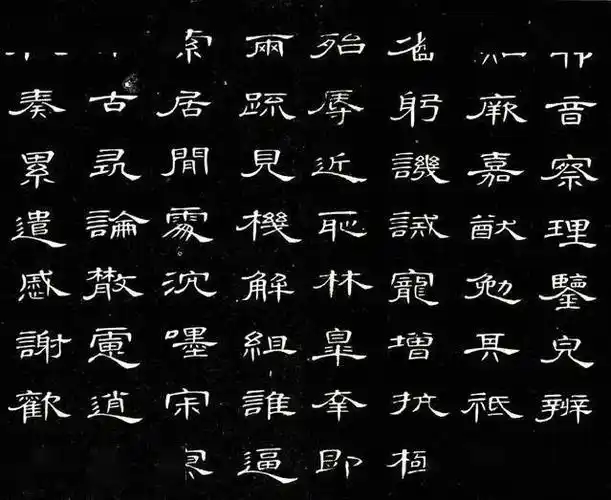 音察理鑒皃辨
厥嘉猷勉其祗
省躬譏誡寵增抗極
殆辱近恥林皋幸即
兩疏見機解組誰逼
索居閒處沉嘿寂
古尋論散慮逍
奏累遣慼謝歡